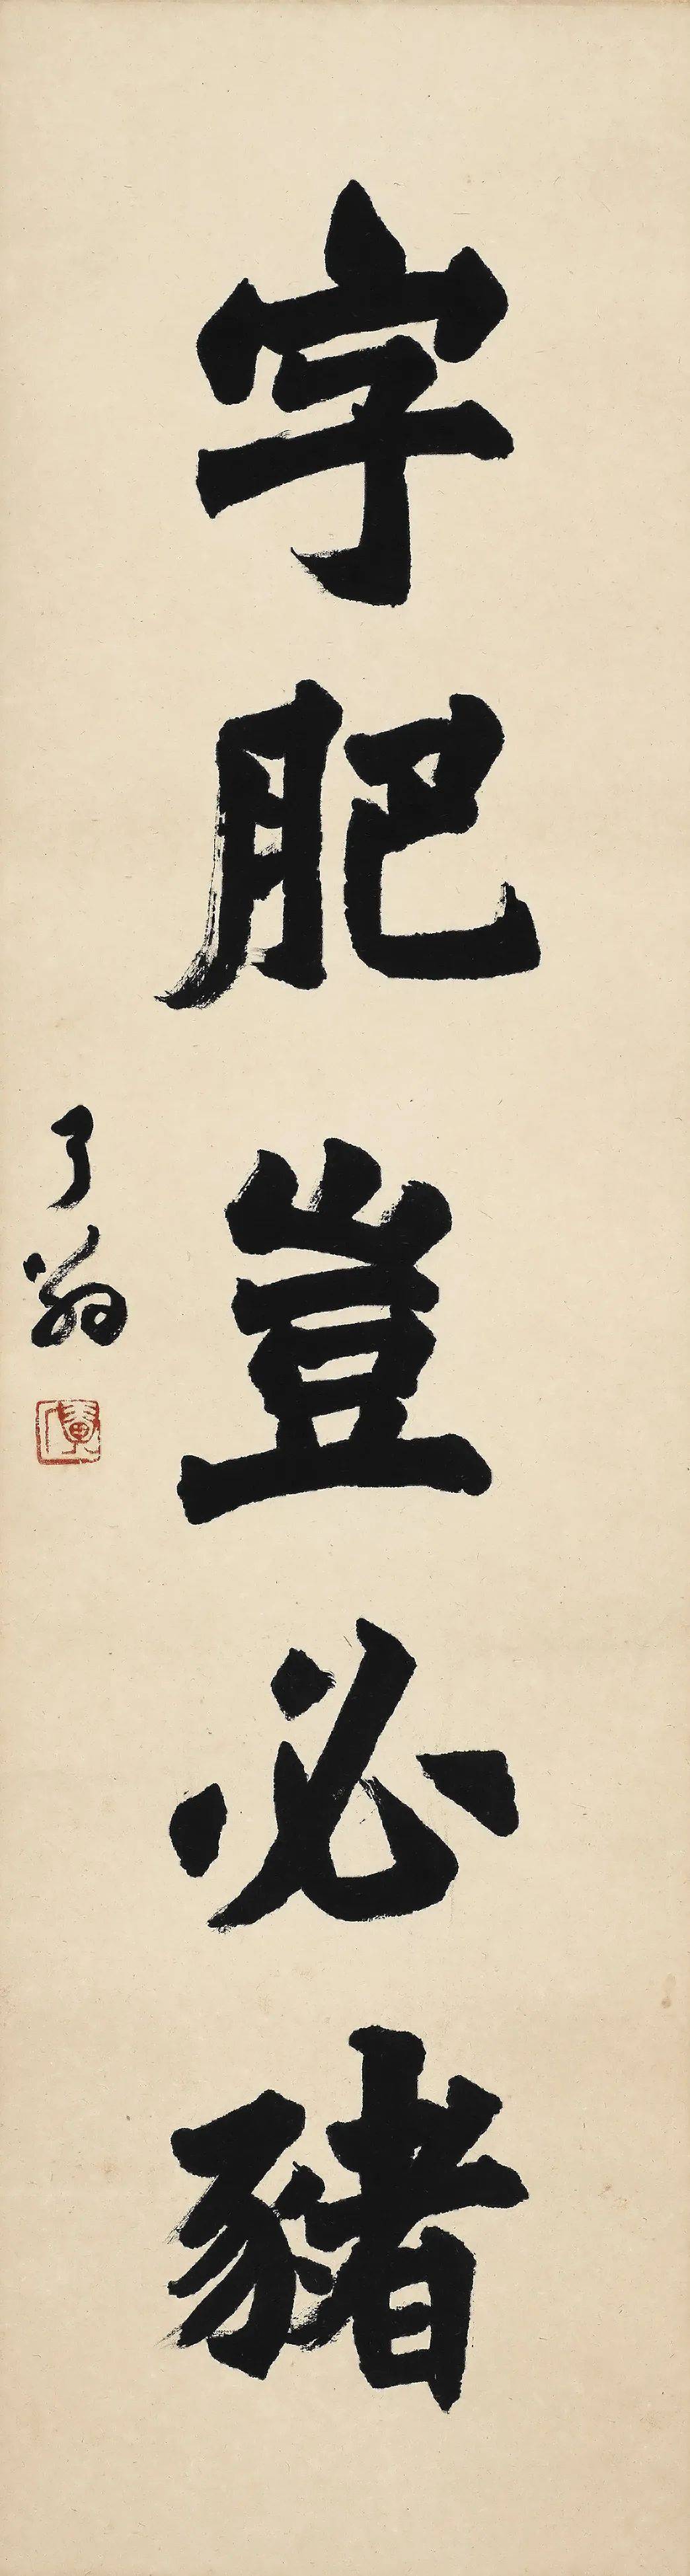 字肥豈必豬
了翁